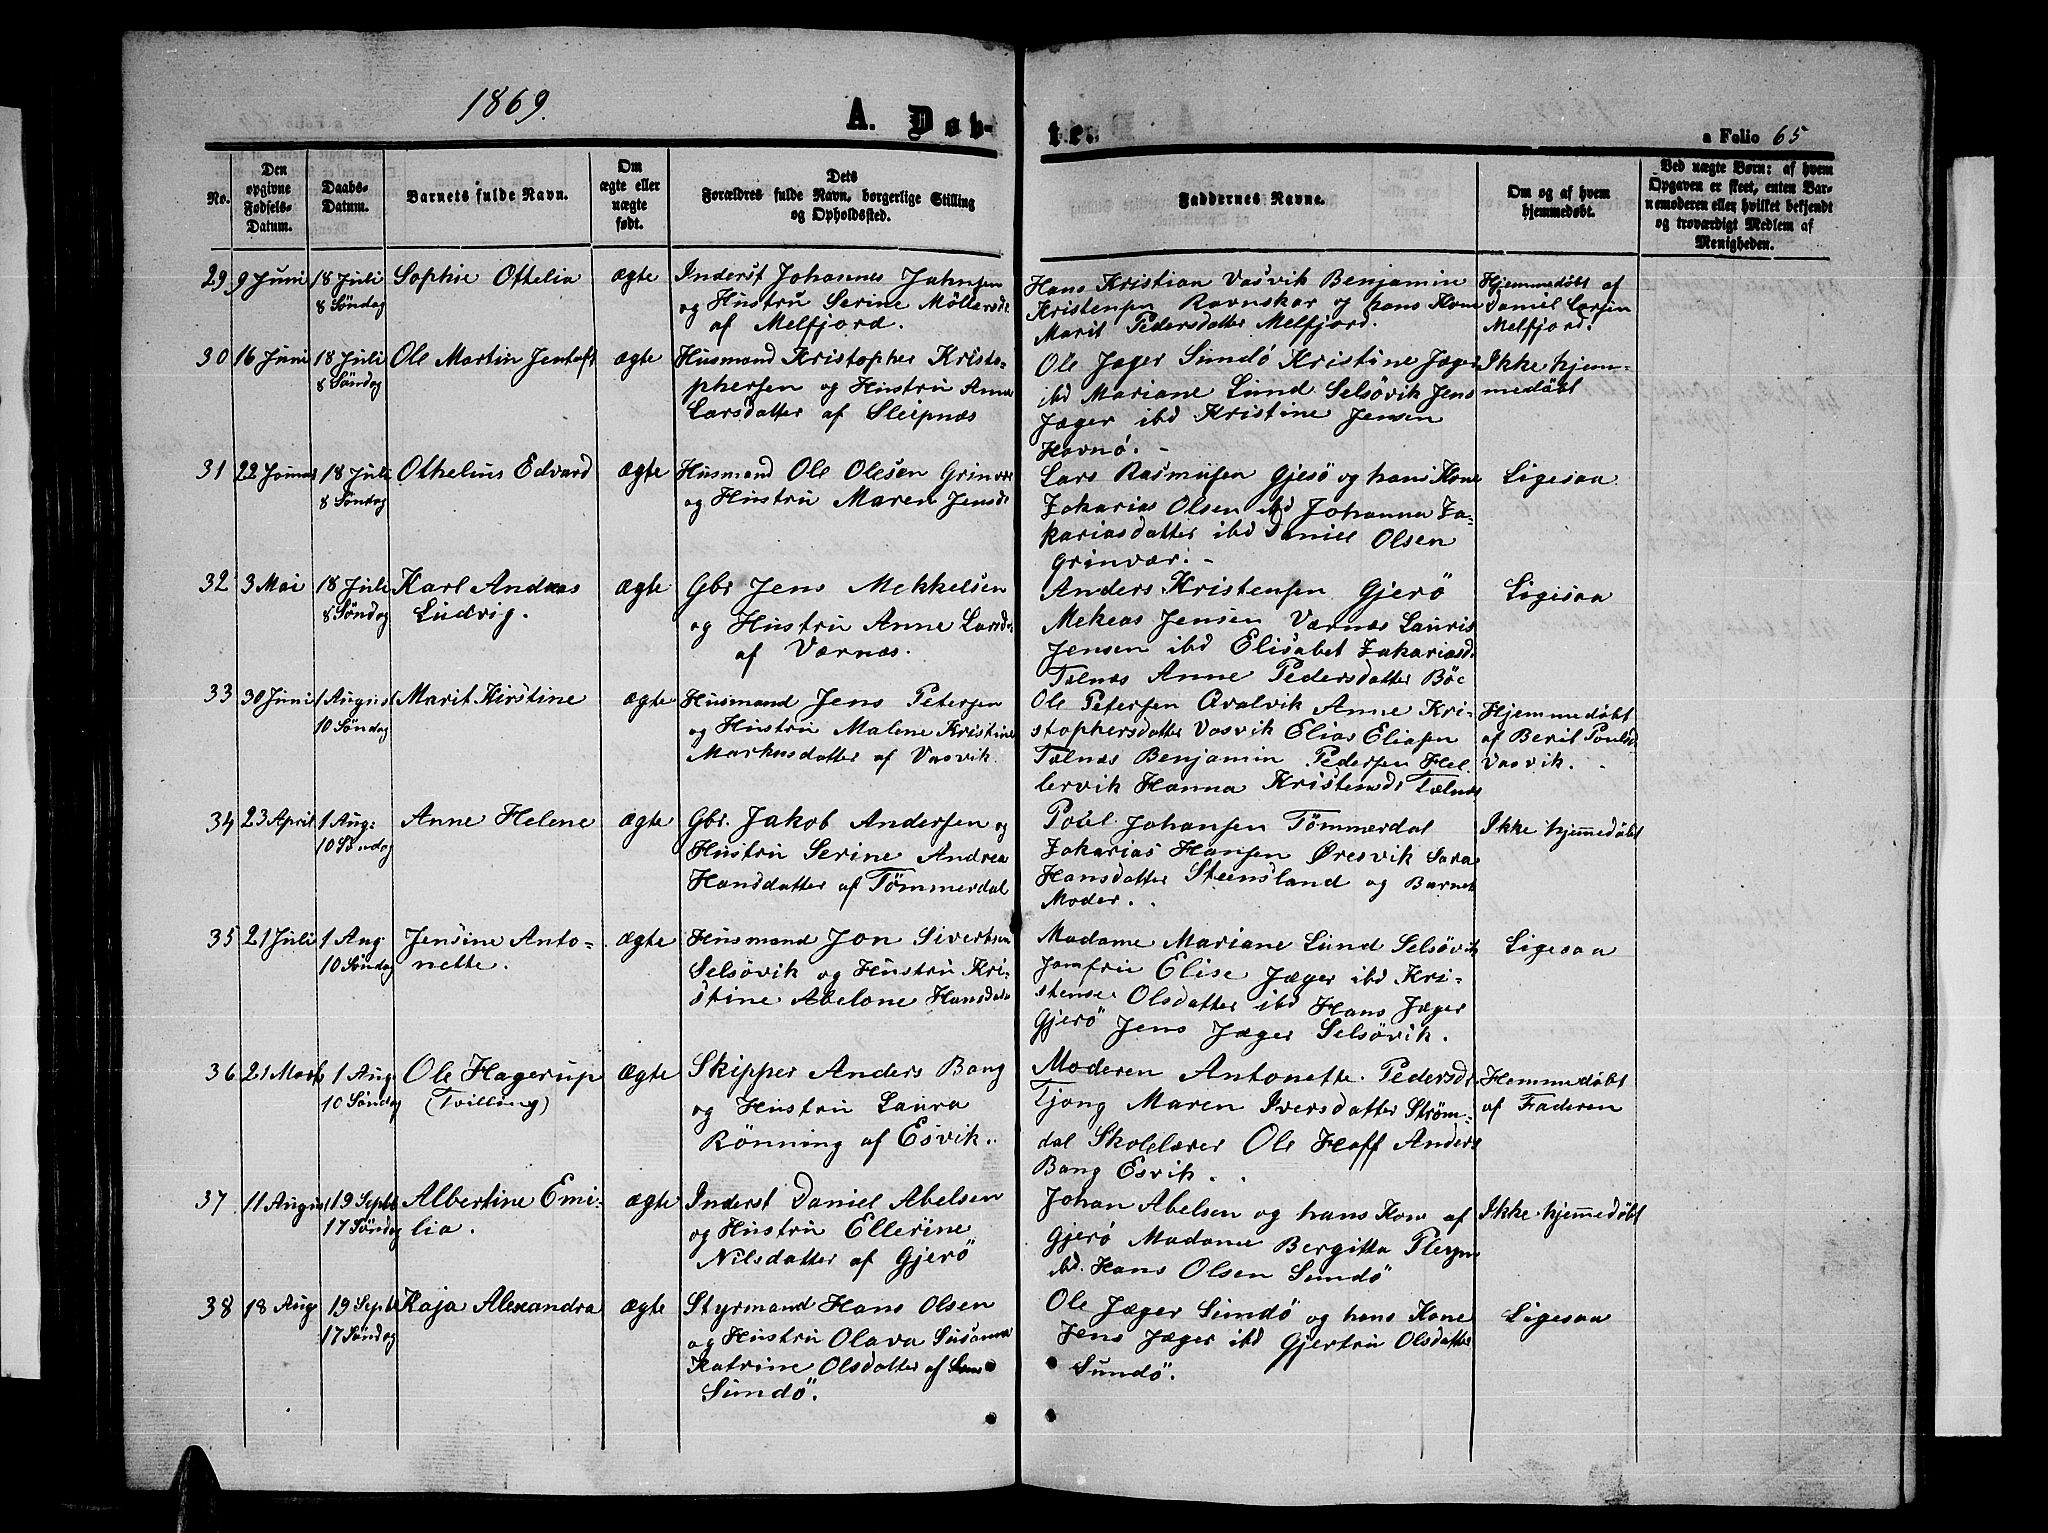 1869. A. Døb-
te. a Folio 65
No.
Den opgivne Fødsels-Datum.
Daabs-Datum.
Barnets fulde Navn.
Om ægte eller uægte født.
Dets Forældres fulde Navn, borgerlige Stilling og Opholdssted.
Faddernes Navne.
Om og af hvem hjemmedøbt.
Ved uægte Børn: af hvem Opgaven er skeet, enten Barnemoderen eller hvilket bekjendt og troværdigt Medlem af Menigheden.
29 9 Juni 18 Juli Sophie Othelia ægte Inderst Johannes Jahnsen
8 Søndag og Hustru Serine Möllersd:
af Melfjord.
Hans Kristian Vasvik Benjamin
Kristensen Ravnskar og hans Kone
Marit Pedersdatter Melfjord.
Hjemmedøbt af
Daniel Larsen
Melfjord.
30 16 Juni 18 Juli Ole Martin Jentoft ægte Husmand Kristopher Kristo-
8 Søndag phersen og Hustru Anne
Larsdatter af Sleipnæs
Ole Jæger Sundö Kristine Jæger
ibd Mariane Lund Selsövik Jens
Jæger ibd Kristine Jensen
Havnö. -
Ikke hjem-
medöbt
31 22 18 Juli Othelius Edvard ægte Husmand Ole Olesen Grinvær
8 Søndag og Hustru Maren Jensd:
Lars Rasmusen Gjesö og hans Kone
Zakarias Olsen ibd Johanna Za-
kariasdatter ibd Daniel Olsen
Grinvær. -
Ligesaa
32 3 Mai 18 Juli Karl Andreas ægte Gbr Jens Mekkelsen
8 Søndag Ludvig. og Hustru Anne Larsd:
af Værnæs.
Anders Kristensen Gjerö
Mekeas Jensen Værnæs Lauris
Jensen ibd Elisabet Zakariasd:
Telnæs Anne Pedersdatter Böe
Ligesaa
33 30 Juni 1 August Marit Kirstine ægte Husmand Jens Petersen
10 Søndag og Hustru Malene Kristine
Markusdatter af Vasvik.
Ole Petersen Qvalvik Anne Kri-
stophersdatter Vasvik Elias Eliasen
Telnæs Benjamin Pedersen Hel-
lervik Hanna Kristensd: Telnæs
Hjemmedöbt
af Berit Poulsd:
Vasvik.
34 23 April 1 Aug: Anne Helene ægte Gbr. Jakob Andersen og
10 Søndag Hustru Serine Andrea
Hansdatter af Tömmerdal
Poul Johansen Tömmerdal
Zakarias Hansen Øresvik Sara
Hansdatter Steensland og Barnets
Moder.
Ikke hjemmedöbt
35 21 Juli 1 Aug Jensine Anto- ægte Husmand Jon Sivertsen
10 Søndag nette. Selsövik og Hustru Kri-
stine Abelone Hansdat:
Madame Mariane Lund Selsövik
Jomfru Elise Jæger ibd Kri-
stense Olsdatter ibd Hans Jæger
Gjerö Jens Jæger Selsövik.
Ligesaa
36 21 Marts 1 Aug Ole Hagerup ægte Skipper Anders Bang
10 Søndag (Tvilling) og Hustru Laura
Rönning af Esvik.
Moderen Antonette Pedersd:
Tjong Maren Iversdatter Ström-
dal Skolelærer Ole Hoff Anders
Bang Esvik.
Hemmedöbt
af Faderen
37 11 August 19 Septb Albertine Emi- ægte Inderst Daniel Abelsen
17 Søndag lia. og Hustru Ellerine
Nilsdatter af Gjerö
Johan Abelsen og hans Kone af
Gjerö Madame Bergitta
ibd. Hans Olsen Sundö
Ikke hjemmedöbt
38 18 Aug 19 Septb Kaja Alexandra ægte Styrmand Hans Olsen
17 Søndag og Hustru Olava Susanna
Katrine Olsdatter af
Sundö.
Ole Jæger Sundö og hans Kone
Jens Jæger ibd Gjertru Olsdatter
Sundö.
Ligesaa